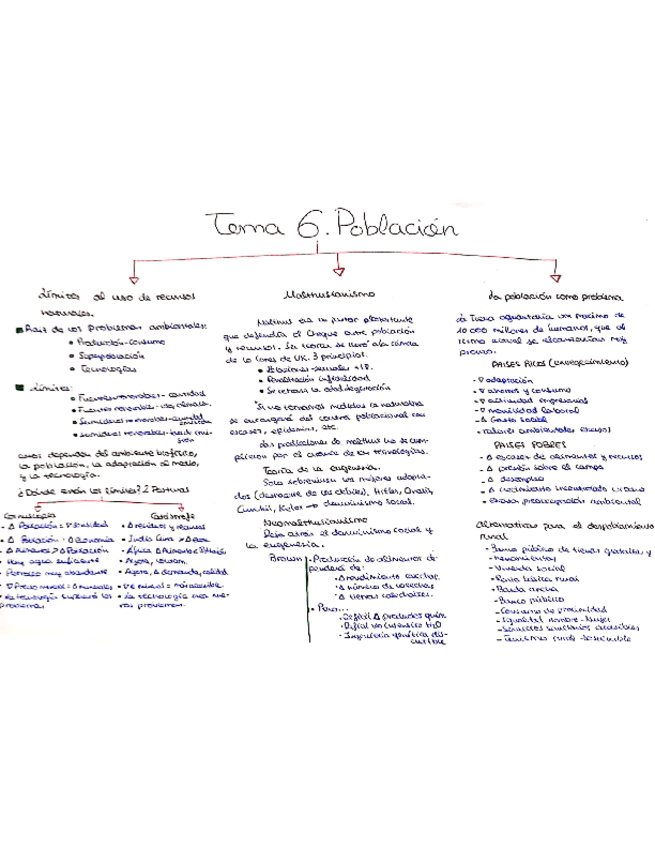 Tema 6. Población
Límites al uso de recursos
naturales.
Raíz de los problemas ambientales:
• Producción-consumo
• Superpoblación
• Tecnologías
Límites:
• Fuentes renovables - cantidad
• Fuentes renovables
• Sumideros renovables
• Sumideros renovables
Estos dependen del ambiente biofísico,
la población, la adaptación al medio,
y la tecnología.
¿Dónde están los límites? 2 Posturas
Cornucopia
• Δ Población
• Δ Población - Δ Economía
• Δ Alimentos > Δ Población
• Hay agua suficiente
• Petróleo muy abundante
• La tecnología superará los
problemas
Catástrofe
• Δ residuos y recursos
• India
• África Δ Alimentos < Población
• Agua, escasa.
• La tecnología crea nue-
vos problemas.
Malthusianismo
Malthus era un pastor protestante
que defendía el choque entre población
y recursos. Su teoría se llevó a la ciencia
de los Lores de UK. 3 principios.
• Se retrasa la edad
Si no tomamos medidas la naturaleza
se encargará del control poblacional con
escasez, epidemias, etc.
Las predicciones de Malthus no se cum-
plieron por el avance de las tecnologías.
Teoría de la eugenesia.
Solo sobreviven los mejores adapta-
dos (descarte de los débiles). Hitler,
darwinismo social.
Neomalthusianismo
Deja atrás el darwinismo social y
la eugenesia.
Brown - Producción de alimentos de-
penderá de:
• Δ rendimiento cosechas.
• Δ número de cosechas
• Δ tierras cultivables.
• Pero...
- Déficit Δ productos quím.
- Difícil
- Ingeniería genética dis-
cutible
La población como problema
La Tierra aguantaría un máximo de
10 000 millones de humanos, que al
ritmo actual se alcanzarían muy
pronto.
PAISES RICOS (envejecimiento)
- ∇ adaptación
- ∇ ahorros y consumo
- ∇ actividad empresarial
- ∇ movilidad laboral
- Δ Gasto social
- valores ambientales escasos
PAISES POBRES
- Δ escasez de alimentos y recursos
- Δ presión sobre el campo
- Δ desempleo
- Δ crecimiento incontrolado urbano
- escasa preocupación ambiental
Alternativas para el despoblamiento
rural
- Banco público de tierras gratuitas y
herramientas
- Vivienda social
- Renta básica rural
- Banda ancha
- Banco público
- Consumo de proximidad
- Igualdad Hombre-Mujer
- Servicios sanitarios accesibles
- Turismo rural sostenible